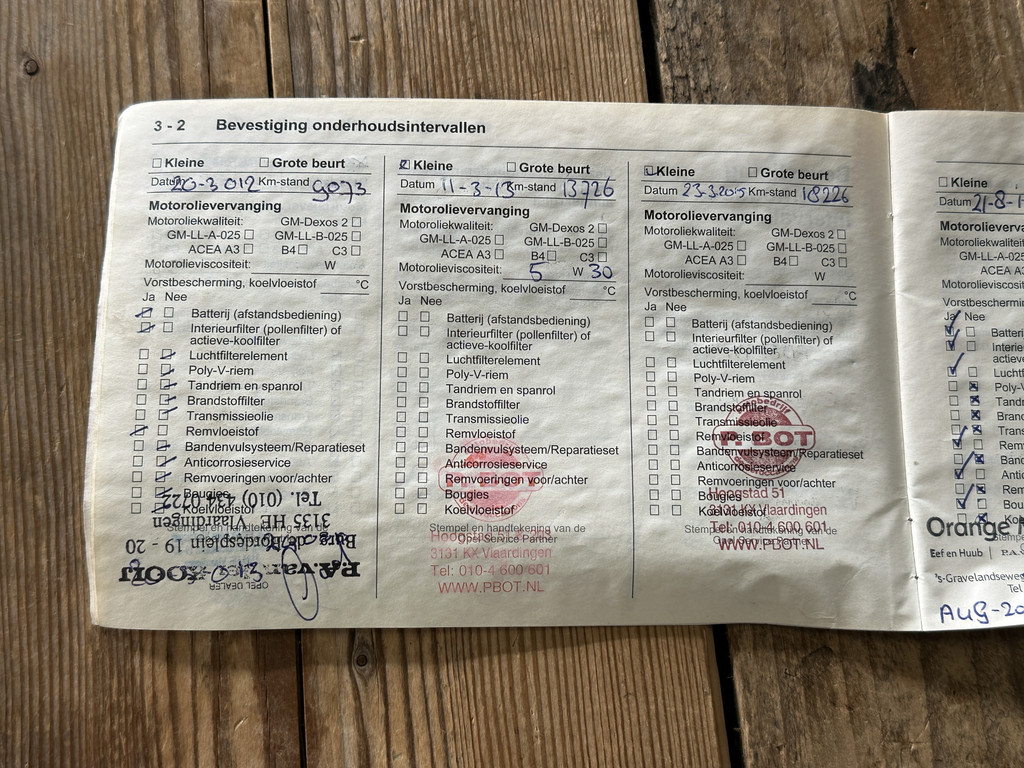 3 - 2 Bevestiging onderhoudsintervallen
Kleine Grote beurt
Datum 20-3 012 Km-stand 9073
Motorolievervanging
Motoroliekwaliteit: GM-Dexos 2
GM-LL-A-025 GM-LL-B-025
ACEA A3 B4 C3
Motorolieviscositeit: W
Vorstbescherming, koelvloeistof °C
Ja Nee
Batterij (afstandsbediening)
Interieurfilter (pollenfilter) of
actieve-koolfilter
Luchtfilterelement
Poly-V-riem
Tandriem en spanrol
Brandstoffilter
Transmissieolie
Remvloeistof
Bandenvulsysteem/Reparatieset
Anticorrosieservice
Remvoeringen voor/achter
Bougies
Koelvloeistof
Stempel en handtekening van de
OPEL DEALER
P.A. van
KOOIJ
Burg. de Bordesplein 19 - 20
3135 HE Vlaardingen
Tel. (010) 434 0722
Kleine Grote beurt
Datum 11-3-13 Km-stand 13726
Motorolievervanging
Motoroliekwaliteit: GM-Dexos 2
GM-LL-A-025 GM-LL-B-025
ACEA A3 B4 C3
Motorolieviscositeit: 5 W 30
Vorstbescherming, koelvloeistof °C
Ja Nee
Batterij (afstandsbediening)
Interieurfilter (pollenfilter) of
actieve-koolfilter
Luchtfilterelement
Poly-V-riem
Tandriem en spanrol
Brandstoffilter
Transmissieolie
Remvloeistof
Bandenvulsysteem/Reparatieset
Anticorrosieservice
Remvoeringen voor/achter
Bougies
Koelvloeistof
P. BOT
Stempel en handtekening van de
Opel Service Partner
Hoogstad 51
3131 KX Vlaardingen
Tel: 010-4 600 601
WWW.PBOT.NL
Kleine Grote beurt
Datum 23.3.2015 Km-stand 18226
Motorolievervanging
Motoroliekwaliteit: GM-Dexos 2
GM-LL-A-025 GM-LL-B-025
ACEA A3 B4 C3
Motorolieviscositeit: W
Vorstbescherming, koelvloeistof °C
Ja Nee
Batterij (afstandsbediening)
Interieurfilter (pollenfilter) of
actieve-koolfilter
Luchtfilterelement
Poly-V-riem
Tandriem en spanrol
Brandstoffilter
Transmissieolie
Remvloeistof
Bandenvulsysteem/Reparatieset
Anticorrosieservice
Remvoeringen voor/achter
Bougies
Koelvloeistof
P. BOT
Stempel en handtekening van de
Opel Service Partner
Hoogstad 51
3131 KX Vlaardingen
Tel: 010-4 600 601
WWW.PBOT.NL
Kleine
Datum 21-8-1
Motorolieverva
Motoroliekwalite
GM-LL-A-02
ACEA A3
Motorolieviscosi
Vorstbeschermin
Ja Nee
Batteri
Interie
actieve
Lucht
Poly-V
Tandr
Brand
Trans
Rem
Band
Antic
Rem
Bou
Orange
Eef en Huub | P.A.
's-Gravelandsewe
Tel
AUG-20